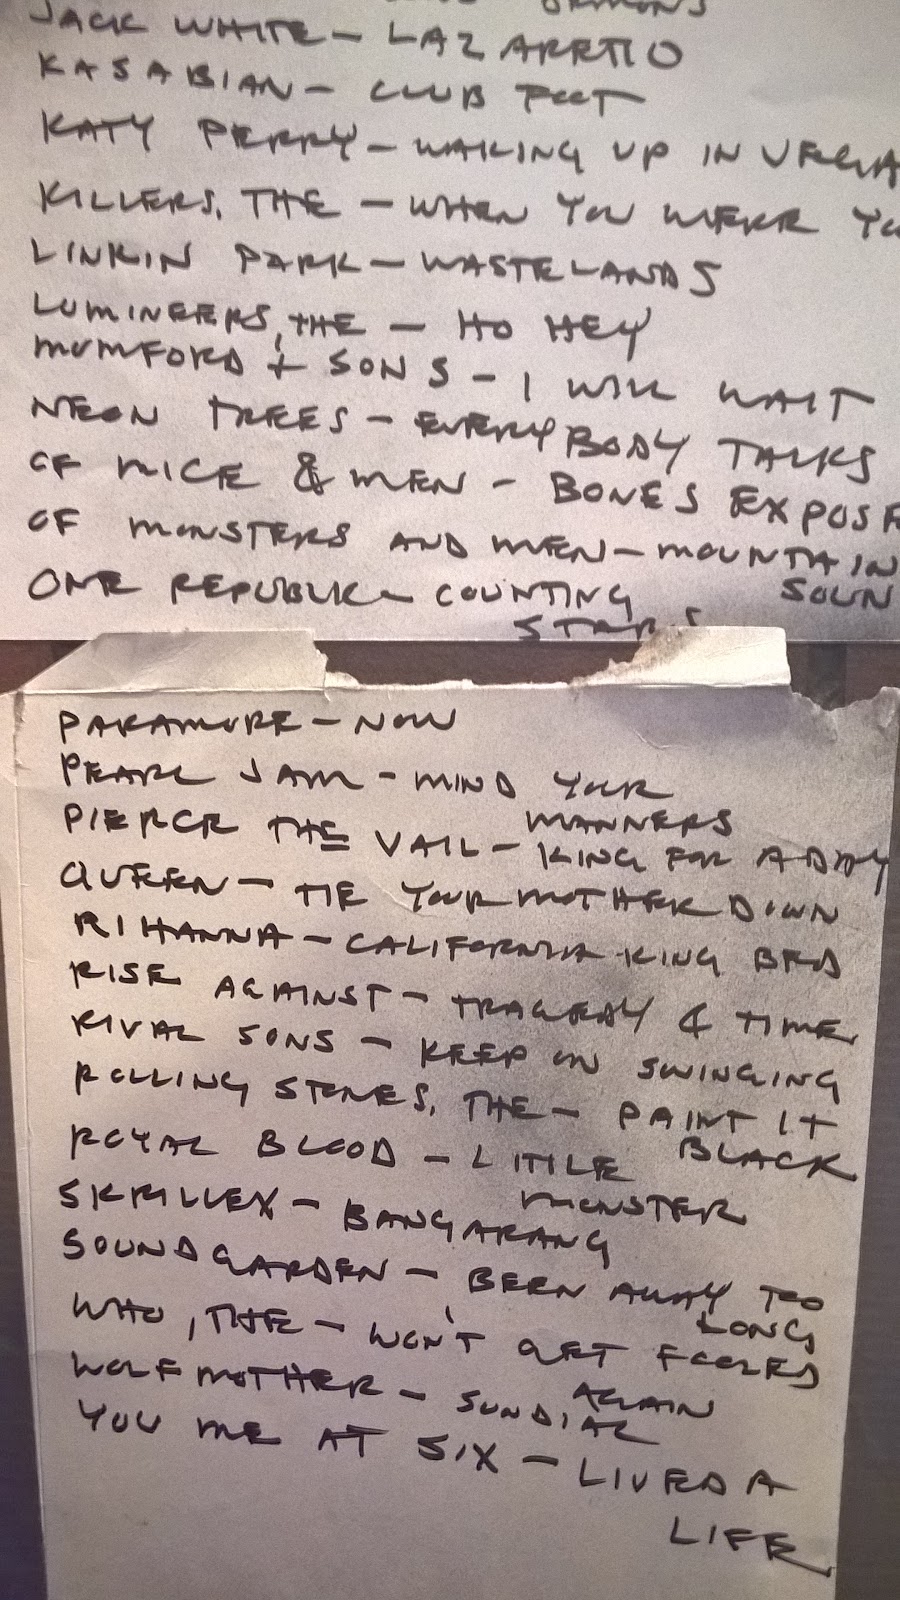 JACK WHITE - LAZARETTO
KASABIAN - CLUB FOOT
KATY PERRY - WAKING UP IN VEGA
KILLERS, THE - WHEN YOU WERE YO
LINKIN PARK - WASTELANDS
LUMINEERS, THE - HO HEY
MUMFORD & SONS - I WILL WAIT
NEON TREES - EVERYBODY TALKS
OF MICE & MEN - BONES EXPOSE
OF MONSTERS AND MEN - MOUNTAIN
SOUN
ONE REPUBLIC - COUNTING
STARS
PARAMORE - NOW
PEARL JAM - MIND YOUR
MANNERS
PIERCE THE VAIL - KING FOR A DAY
QUEEN - TIE YOUR MOTHER DOWN
RIHANNA - CALIFORNIA KING BED
RISE AGAINST - TRAGEDY & TIME
RIVAL SONS - KEEP ON SWINGING
ROLLING STONES, THE - PAINT IT
BLACK
ROYAL BLOOD - LITTLE
MONSTER
SKRILLEX - BANGARANG
SOUNDGARDEN - BEEN AWAY TOO
LONG
WHO, THE - WON'T GET FOOLED
AGAIN
WOLFMOTHER - SUNDIAL
YOU ME AT SIX - LIVED A
LIFE